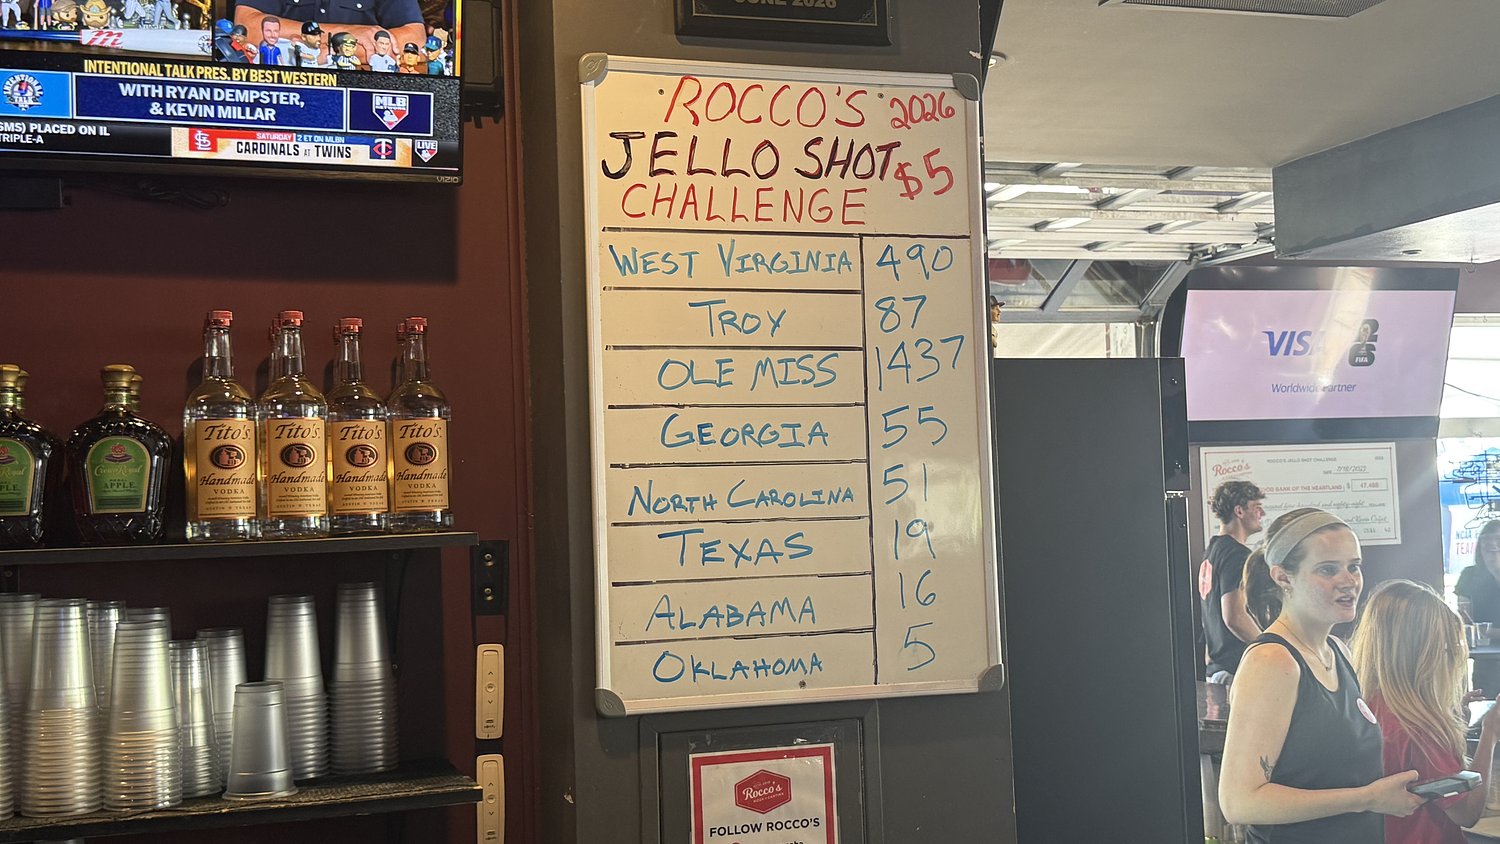 JUNE 2026
ROCCO'S 2026
JELLO SHOT $5
CHALLENGE
WEST VIRGINIA 490
TROY 87
OLE MISS 1437
GEORGIA 55
NORTH CAROLINA 51
TEXAS 19
ALABAMA 16
OKLAHOMA 5
INTENTIONAL TALK PRES. BY BEST WESTERN
INTENTIONAL TALK
WITH RYAN DEMPSTER,
& KEVIN MILLAR
MLB
NETWORK
SMS) PLACED ON IL
TRIPLE-A
SATURDAY 2 ET ON MLBN
CARDINALS AT TWINS
LIVE
VIZIO
Crown Royal
APPLE
Tito's
Handmade
VODKA
AUSTIN TEXAS
Tito's
Handmade
VODKA
AUSTIN TEXAS
Tito's
Handmade
VODKA
AUSTIN TEXAS
Tito's
Handmade
VODKA
AUSTIN TEXAS
VISA
FIFA
Worldwide Partner
Rocco's
ROCCO'S JELLO SHOT CHALLENGE
DATE
FOOD BANK OF THE HEARTLAND $
Rocco's
FOLLOW ROCCO'S